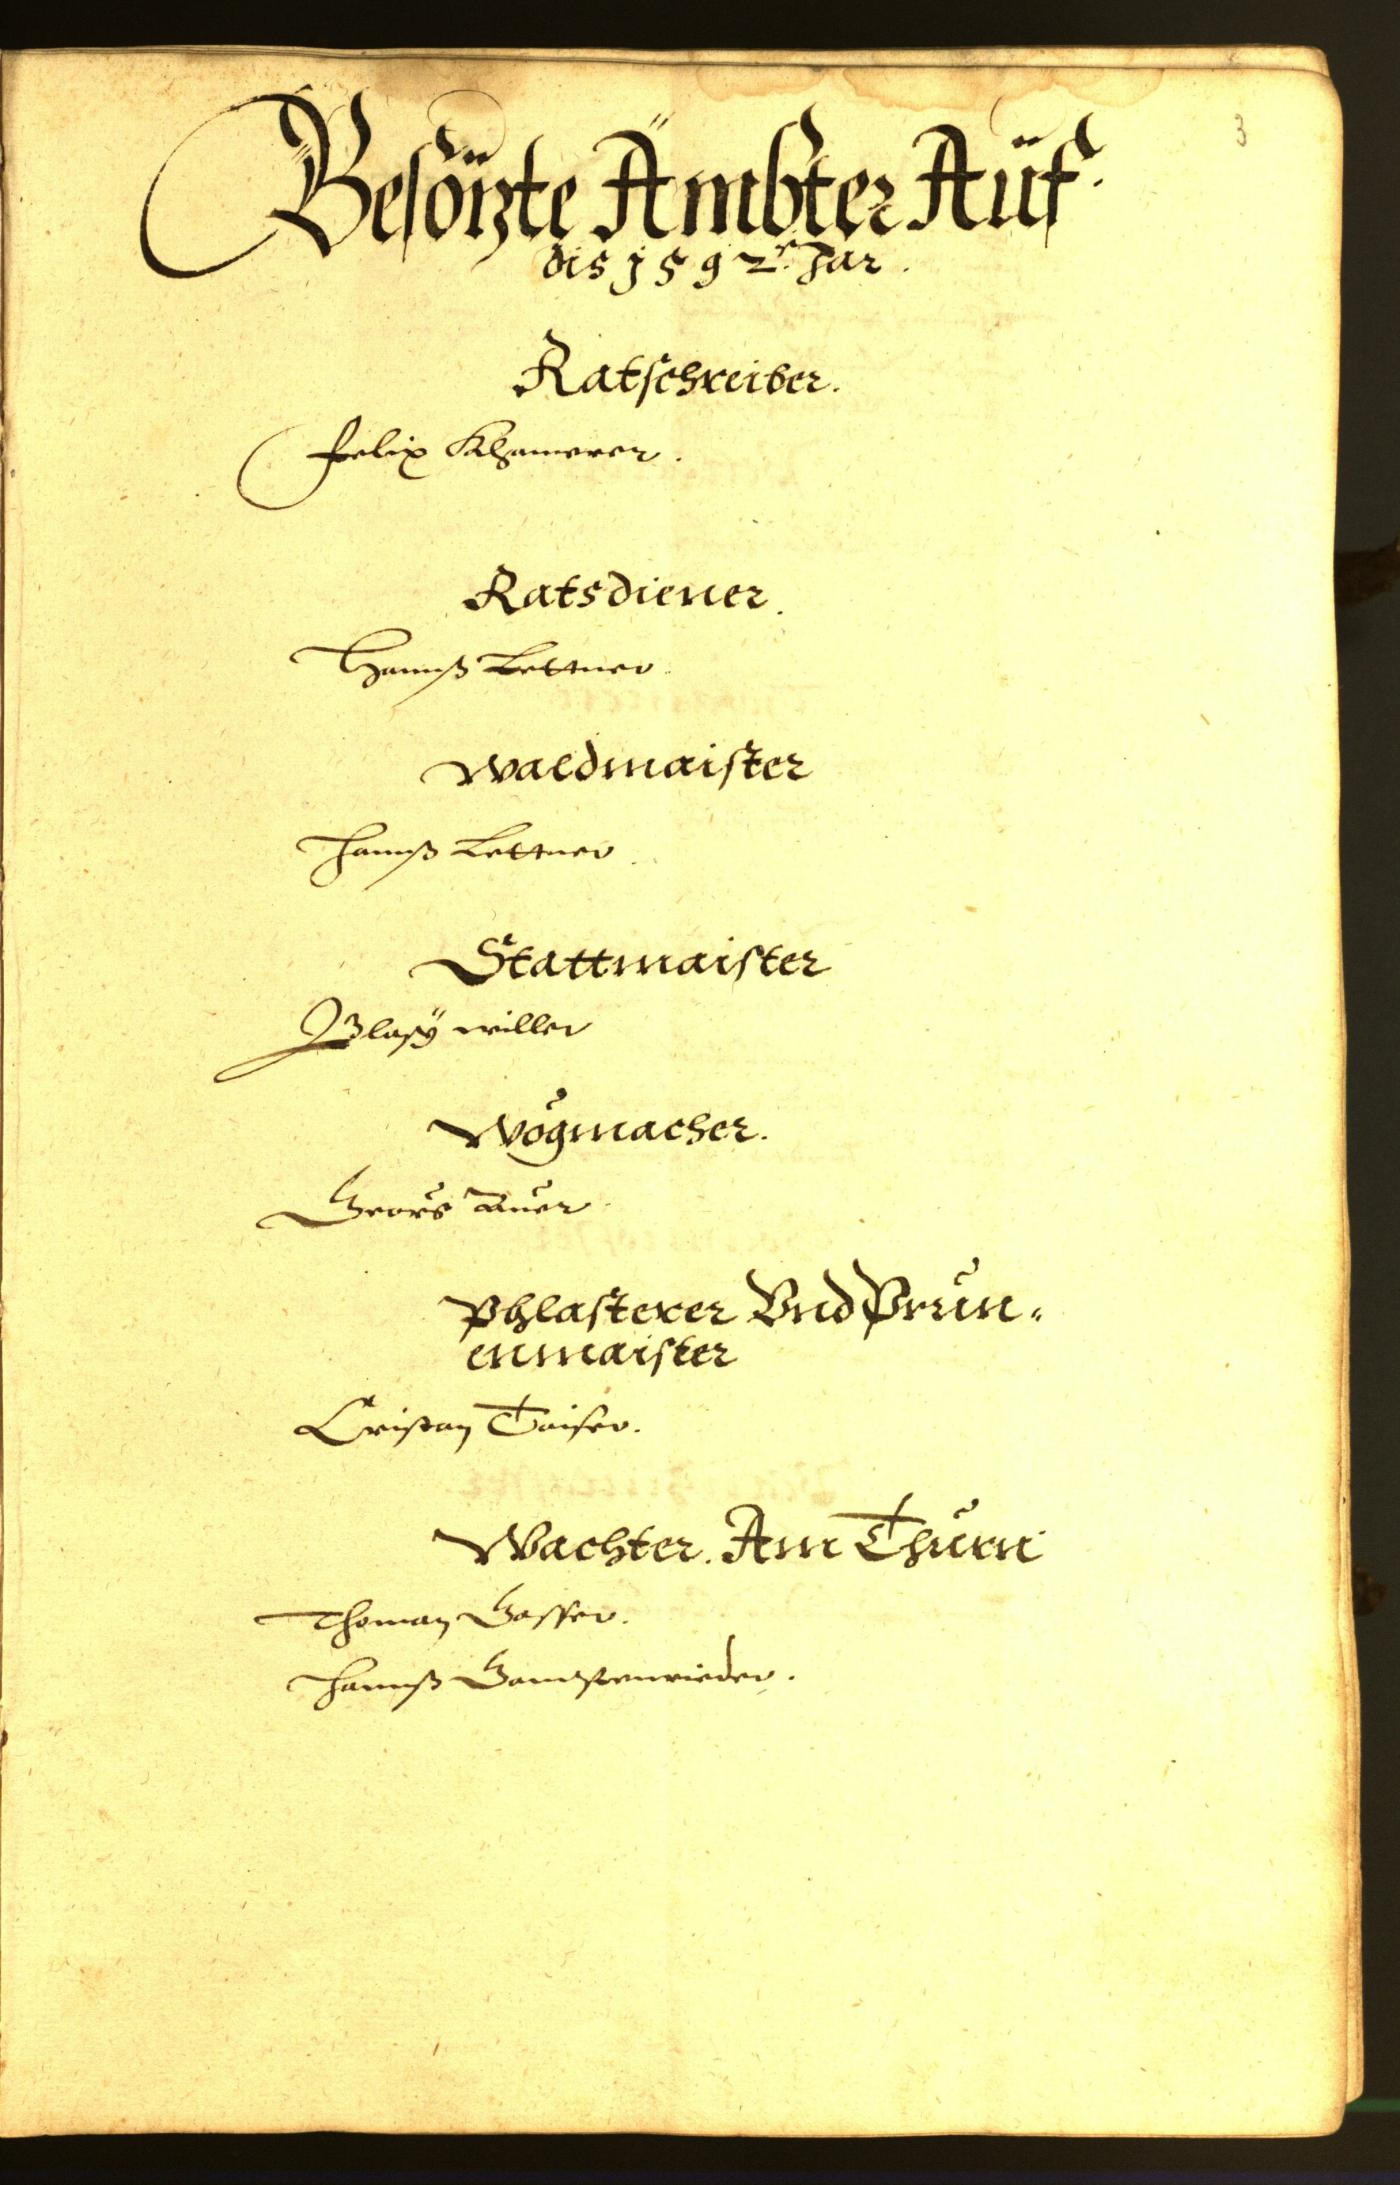 3
Besötzte Ämbter Auf
dis 1592r. Jar.
Ratschreiber.
Felix Khamerer.
Ratsdiener.
Hannß Lettner.
Waldmaister
Hannß Lettner.
Stattmaister
Blasÿ Willer
Wögmacher.
Georg Auer
Phlasterer Vnd Prun-
enmaister
Cristan Taiser.
Wachter. Am Thurn
Thoman Gasser.
Hannß